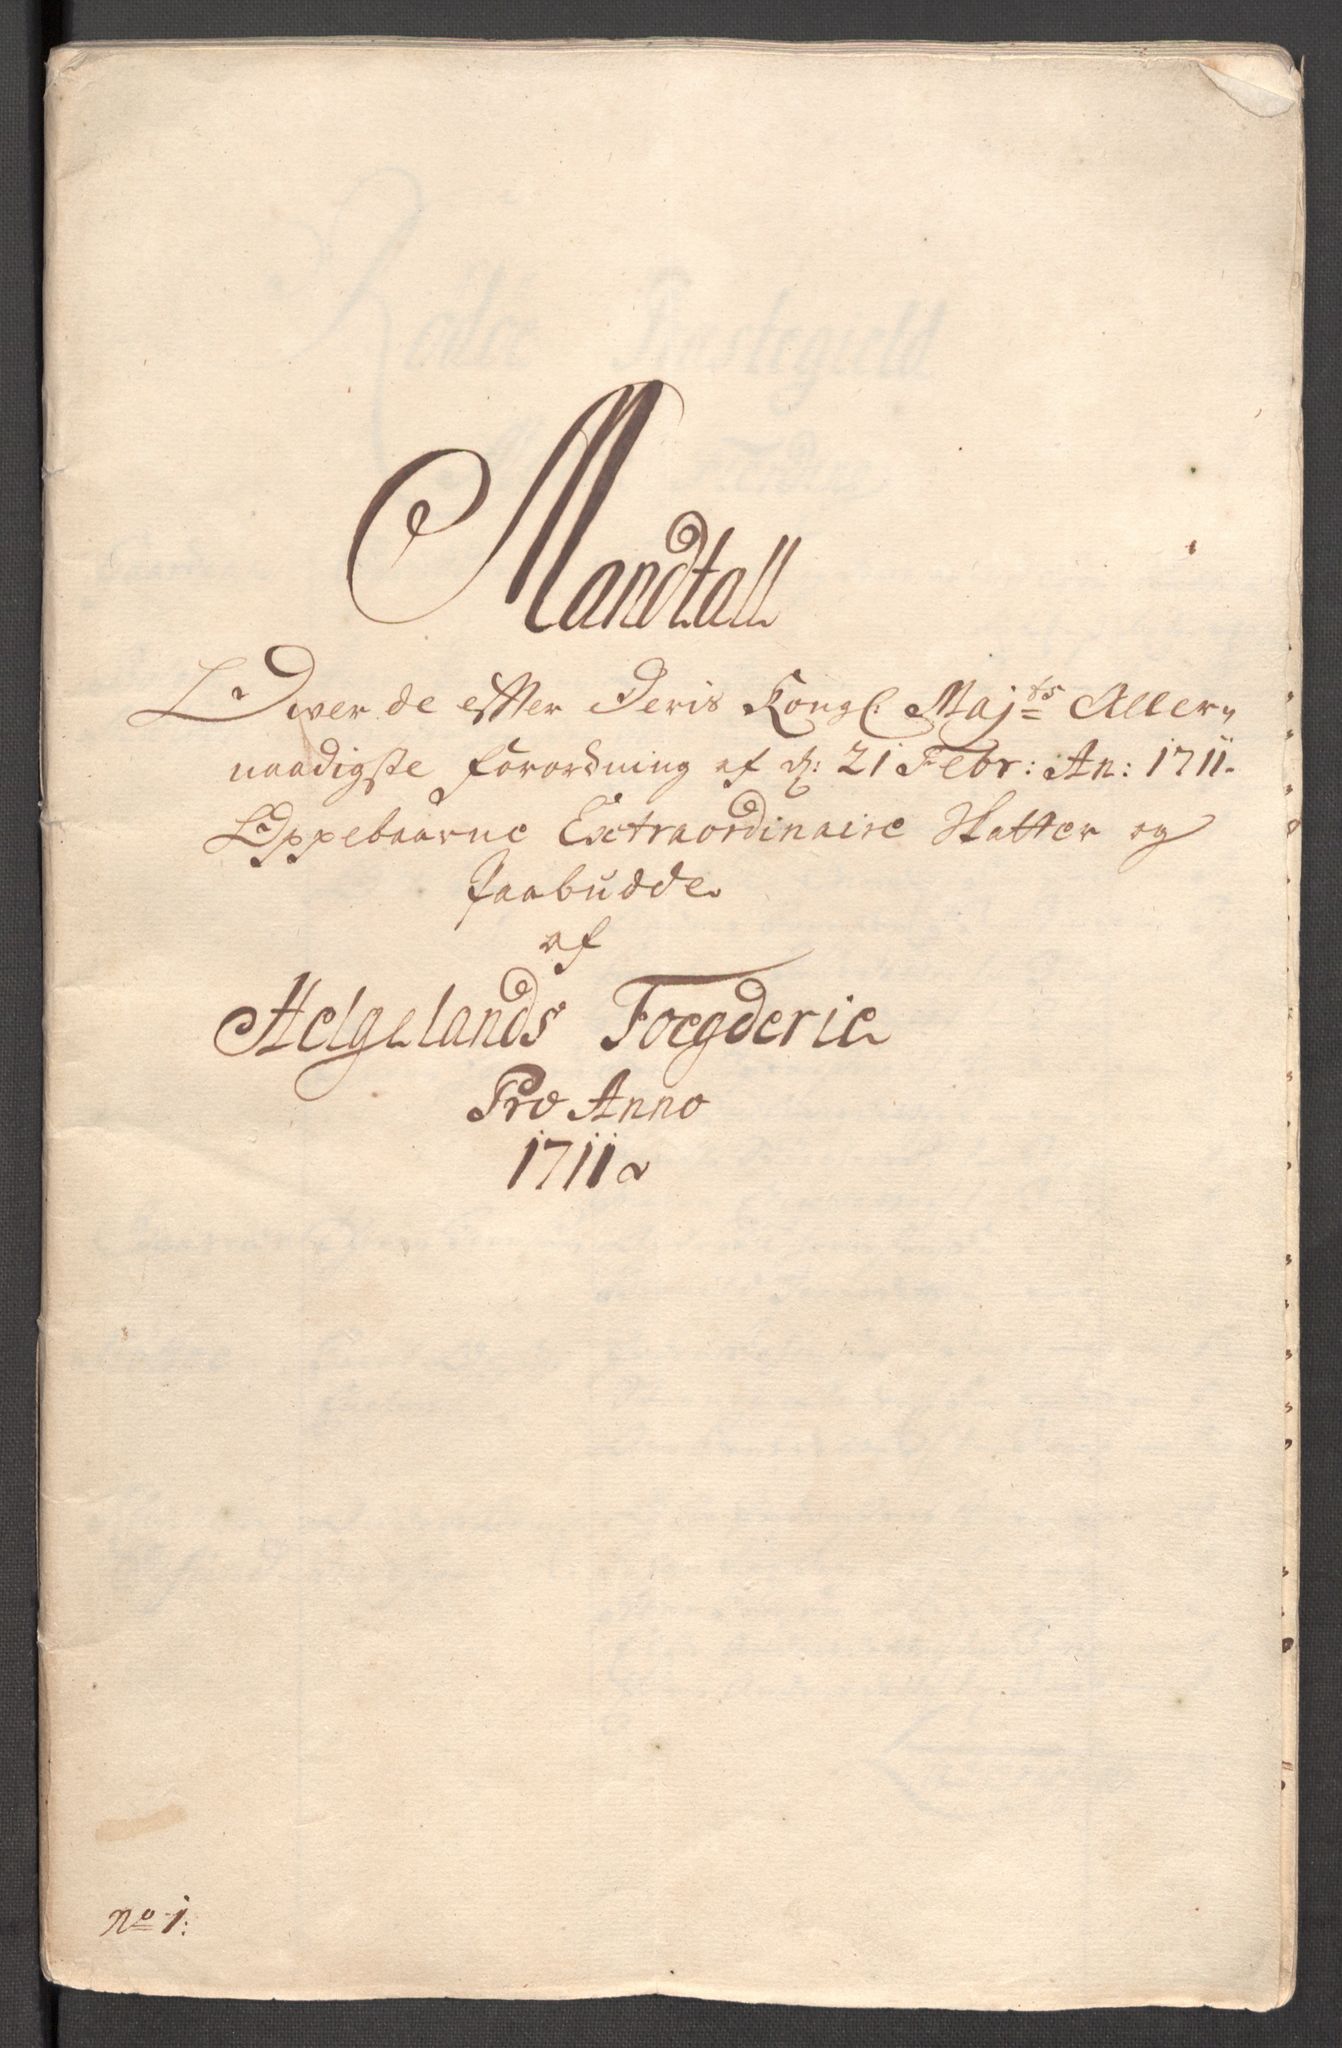 Mandtall
Ower de effter Deris Kongl: Maj:ts Aller-
naadigste forordning af d: 21 Febr: An: 1711.
Oppebaarne Extraordinaire Skatter og
Paabudde
af
Helgelands Foegderie
Pro Anno
1711
No 1: